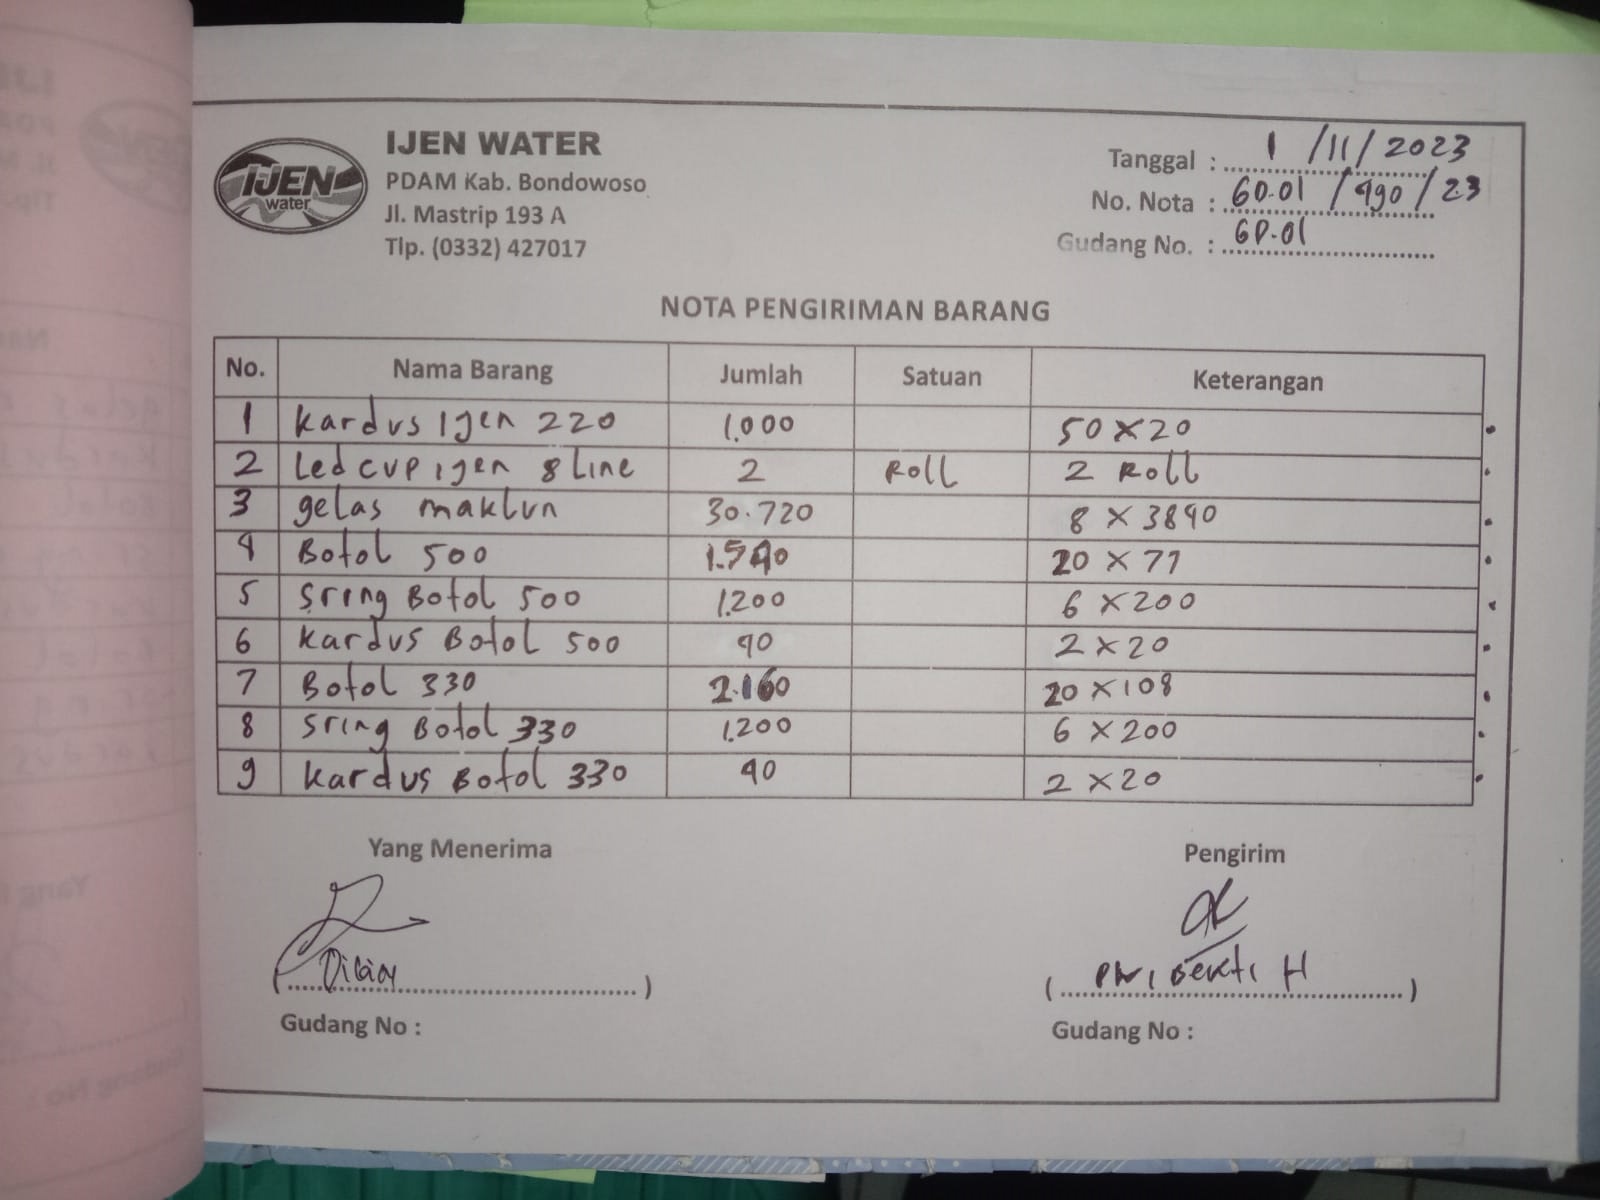 IJEN
water
IJEN WATER
PDAM Kab. Bondowoso
Jl. Mastrip 193 A
Tlp. (0332) 427017
Tanggal : 1 / 11 / 2023
No. Nota : GD.01 / 490 / 23
Gudang No. : GD.01
NOTA PENGIRIMAN BARANG
No. Nama Barang Jumlah Satuan Keterangan
1 Kardus Ijen 220 1.000 50 X 20
2 Led cup ijen 8 Line 2 Roll 2 Roll
3 gelas maklun 30.720 8 X 3840
4 Botol 500 1.540 20 X 77
5 Sring Botol 500 1.200 6 X 200
6 Kardus Botol 500 40 2 X 20
7 Botol 330 2.160 20 X 108
8 Sring Botol 330 1.200 6 X 200
9 Kardus Botol 330 40 2 X 20
Yang Menerima Pengirim
( ) ( H )
Gudang No : Gudang No :